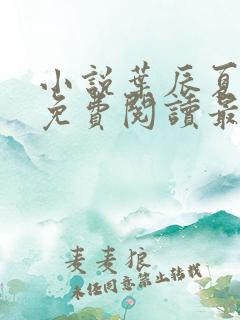 小説葉辰夏
免費閱讀最
麦麦狼
未经同意禁止转载